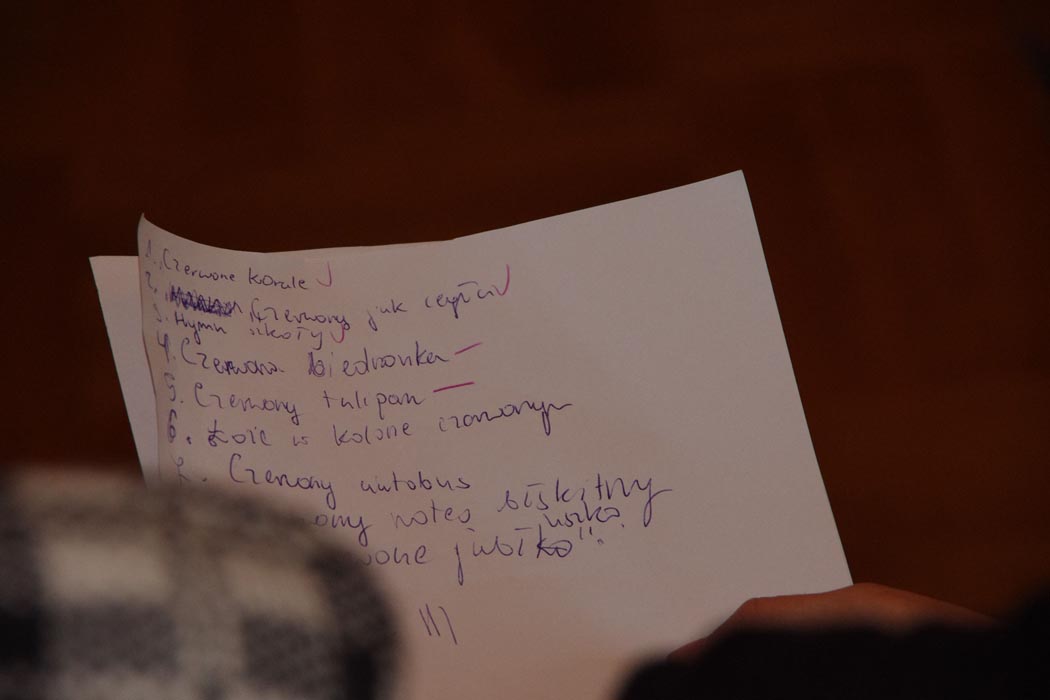 1. Czerwone korale
2. Czerwony jak cegła
3. Hymn szkoły
4. Czerwona biedronka
5. Czerwony tulipan
6. w kolorze czerwonym
7. Czerwony autobus
ony notes błękitny
wone jabłko"